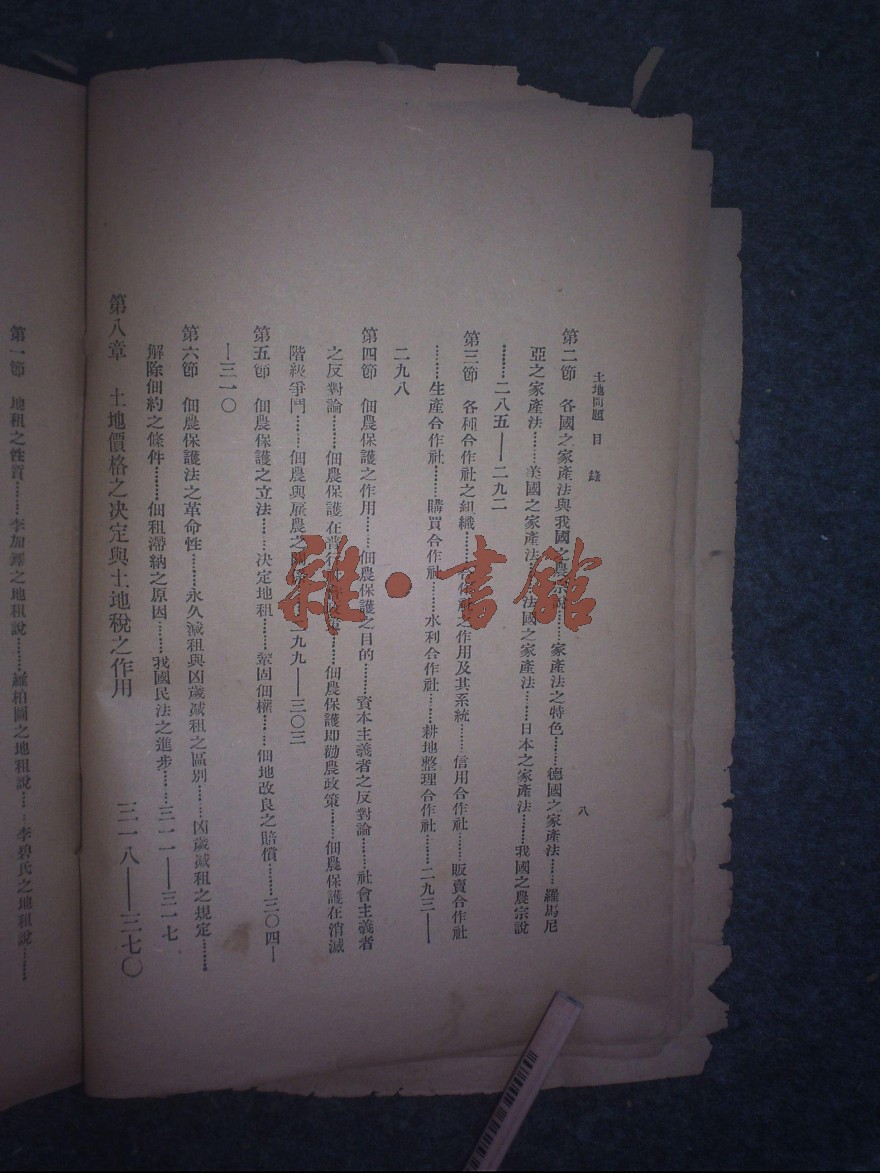 土地問題 目錄
八
第二節 各國之家產法與我國之農宗說……家產法之特色……德國之家產法……羅馬尼
亞之家產法……美國之家產法……法國之家產法……日本之家產法……我國之農宗說
……二八五——二九二
第三節 各種合作社之組織……之作用及其系統……信用合作社……販賣合作社
……生產合作社……購買合作社……水利合作社……耕地整理合作社……二九三——
二九八
第四節 佃農保護之作用……佃農保護之目的……資本主義者之反對論……社會主義者
之反對論……佃農保護在……佃農保護即勸農政策……佃農保護在消滅
階級爭鬥……佃農與雇農之……二九九——三〇三
第五節 佃農保護之立法……決定地租……鞏固佃權……佃地改良之賠償……三〇四—
—三一〇
第六節 佃農保護法之革命性……永久減租與凶歲減租之區別……凶歲減租之規定……
解除佃約之條件……佃租滯納之原因……我國民法之進步……三一一——三一七
第八章 土地價格之決定與土地稅之作用 三一八——三七〇
第一節 地租之性質……李加鐸之地租說……羅柏圖之地租說……李碧氏之地租說……
雜·書館